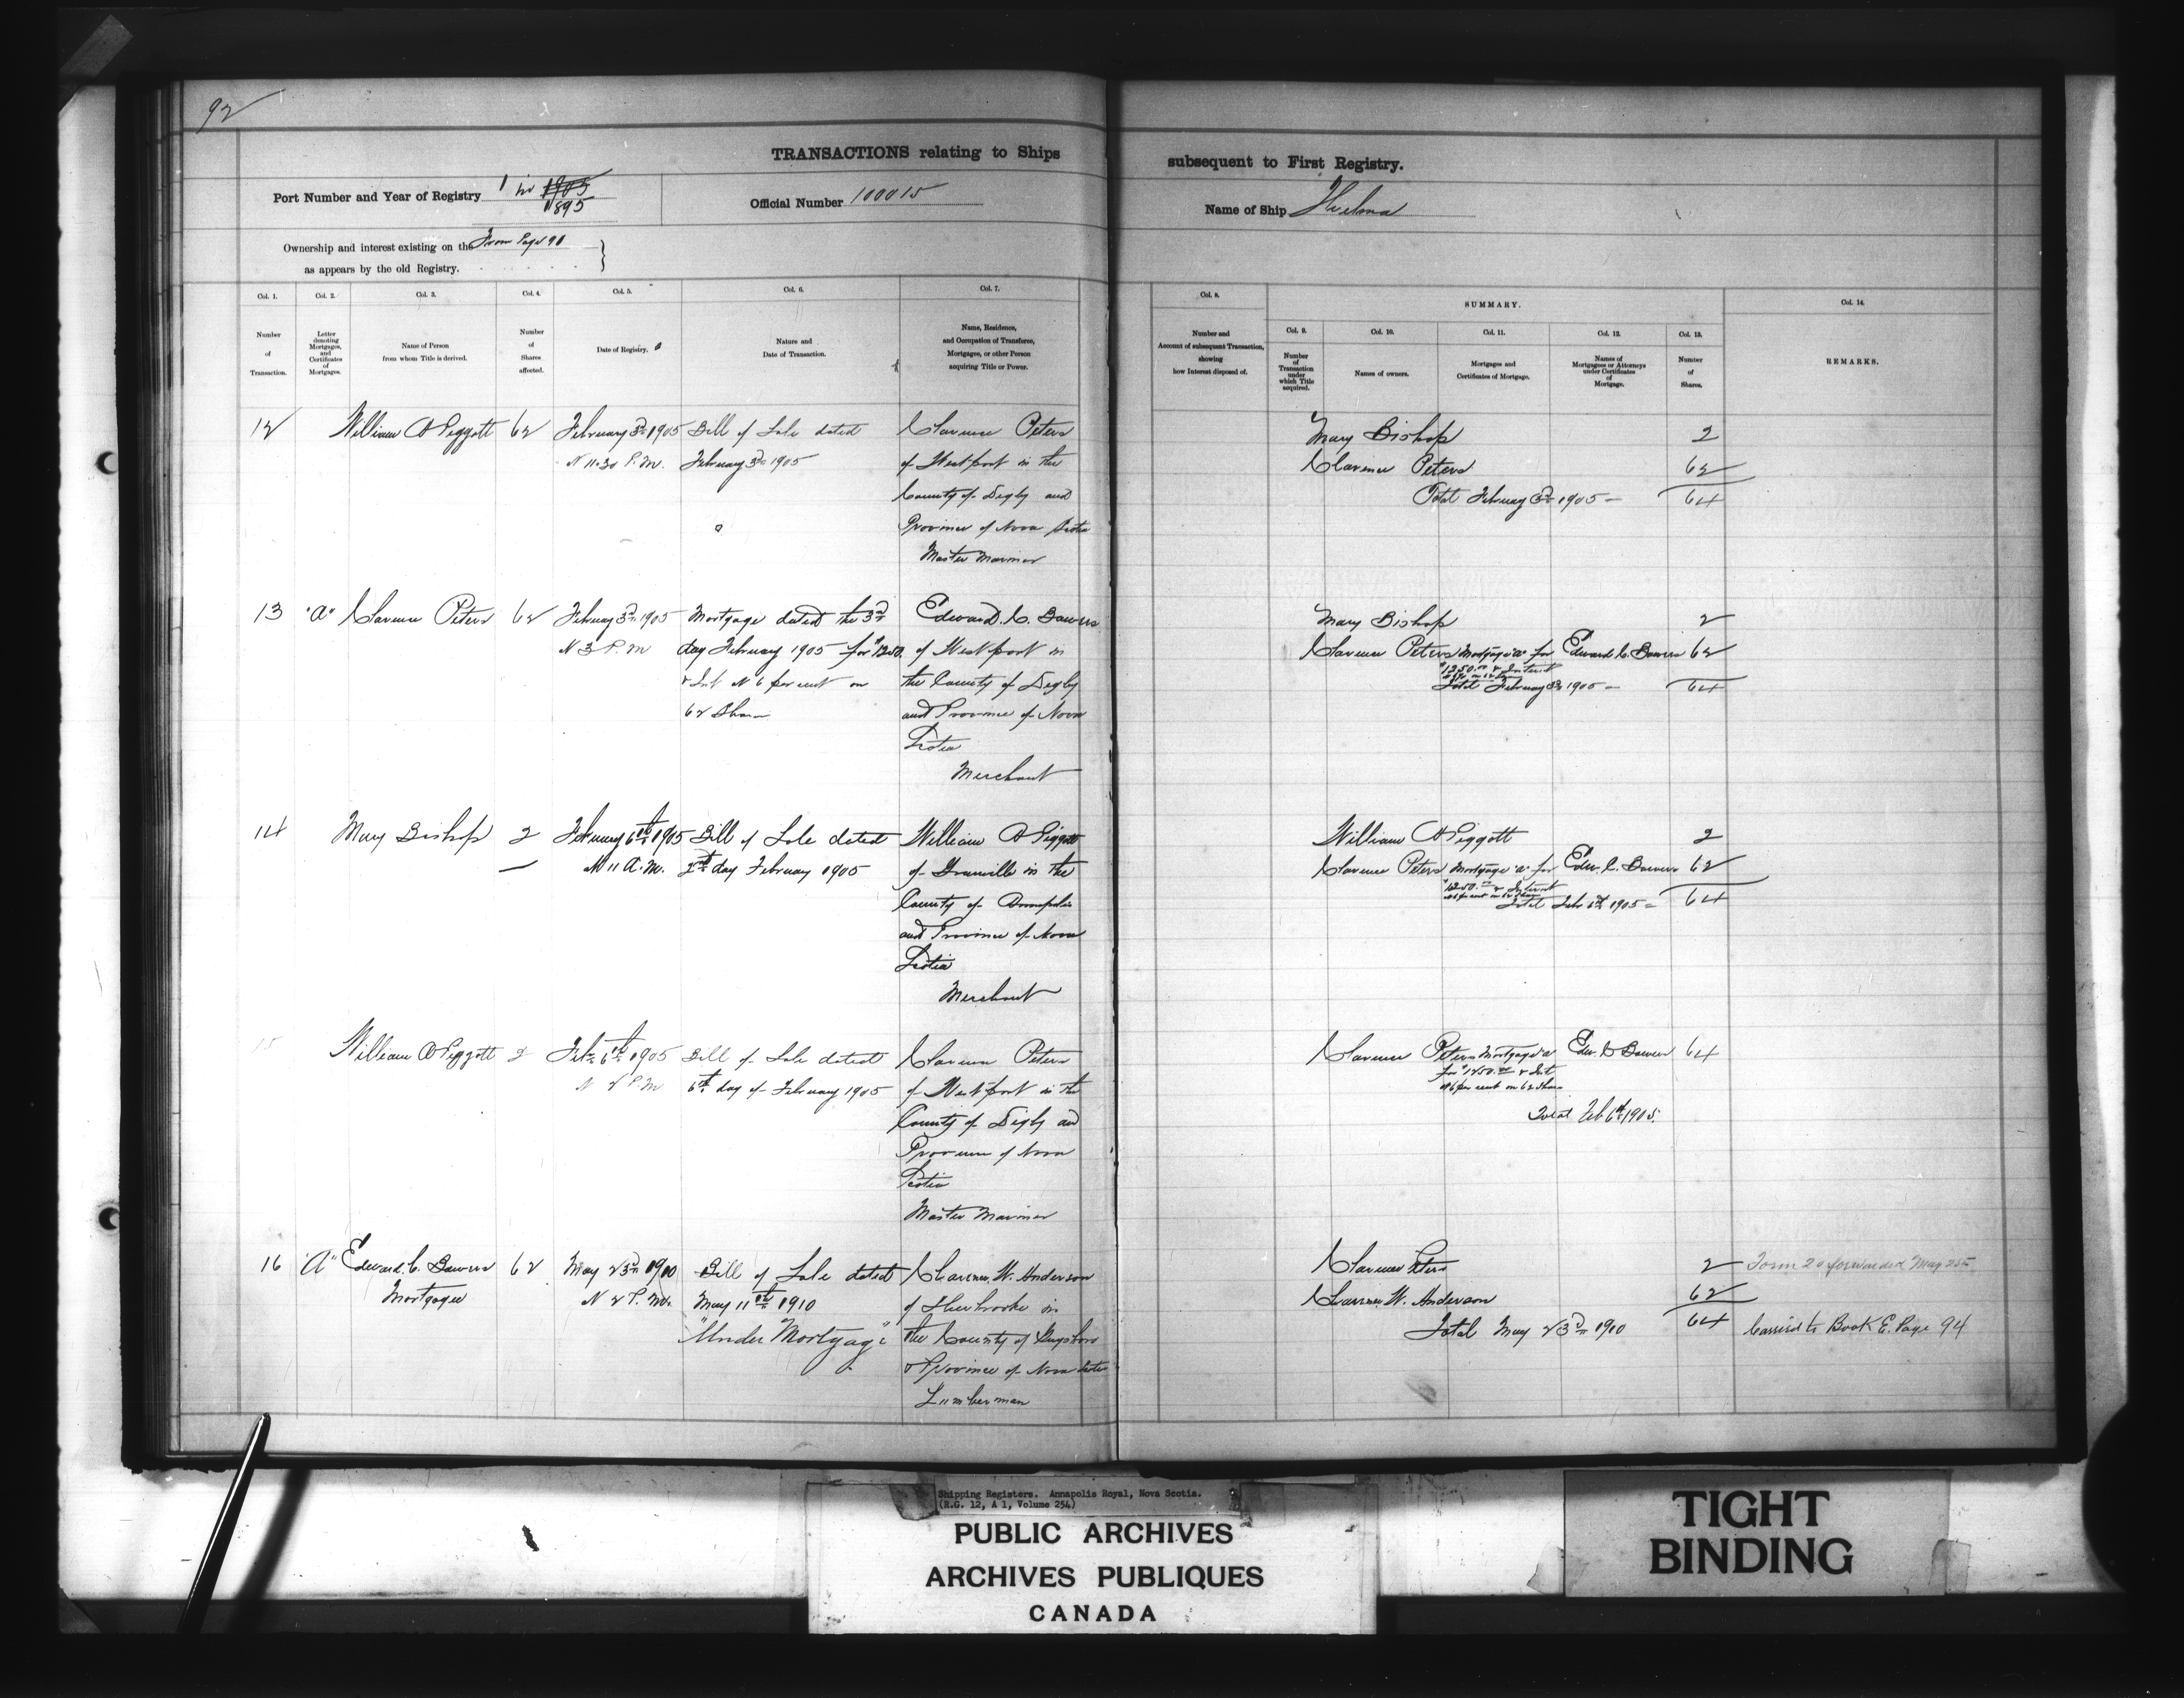 92
TRANSACTIONS relating to Ships subsequent to First Registry.
Port Number and Year of Registry 1 in 1905 1895
Official Number 100015
Name of Ship
Ownership and interest existing on the From Page 91
as appears by the old Registry.
Col. 1. Number of Transaction.
Col. 2. Letter denoting Mortgages, and Certificates of Mortgages.
Col. 3. Name of Person from whom Title is derived.
Col. 4. Number of Shares affected.
Col. 5. Date of Registry.
Col. 6. Nature and Date of Transaction.
Col. 7. Name, Residence, and Occupation of Transferee, Mortgagee, or other Person acquiring Title or Power.
Col. 8. Number and Account of subsequent Transaction, showing how Interest disposed of.
SUMMARY.
Col. 9. Number of Transaction under which Title acquired.
Col. 10. Names of owners.
Col. 11. Mortgages and Certificates of Mortgage.
Col. 12. Names of Mortgagees or Attorneys under Certificates of Mortgage.
Col. 13. Number of Shares.
Col. 14. REMARKS.
12 William A Piggott 62 February 3rd 1905 Bill of Sale dated Clarence Peters
At 11.30 P.M. February 3rd 1905 of Westport in the
County of Digby and
Province of Nova Scotia
Master Mariner
Mary Bishop 2
Clarence Peters 62
Total February 3rd 1905 - 64
13 "A" Clarence Peters 62 February 3rd 1905 Mortgage dated the 3rd Edward. C. Bowers
At 3 P.M day February 1905 for $1250. of Westport in
& Int At 6 per cent on the County of Digby
62 Shares and Province of Nova
Scotia
Merchant
Mary Bishop 2
Clarence Peters Mortgage "A" for Edward C. Bowers 62
$1250.00 & Interest
Total February 3rd 1905 - 64
14 Mary Bishop 2 February 6th 1905 Bill of Sale dated William A Piggott
At 11 A.M. day February 1905 of Granville in the
County of Annapolis
and Province of Nova
Scotia
Merchant
William A Piggott 2
Clarence Peters Mortgage "A" for Edw. C. Bowers 62
$1250.00 & Interest
At 6 per cent on 62 Shares
Total Feb 6th 1905 - 64
15 William A Piggott 2 Feb. 6th 1905 Bill of Sale dated Clarence Peters
At 2 P.M 6th day of February 1905 of Westport in the
County of Digby and
Province of Nova
Scotia
Master Mariner
Clarence Peters Mortgage "A" Edw. C Bowers 64
for $1250.00 & Int
At 6 per cent on 62 Shares
Total Feb 6th 1905.
16 "A" Edward. C. Bowers 62 May 23rd 1910 Bill of Sale dated Clarence W. Anderson
Mortgagee At 2 P.M. May 11th 1910 of Sherbrooke in
"Under Mortgage" the County of Guysboro
& Province of Nova Scotia
Lumberman
Clarence Peters 2 Form 20 forwarded May 25
Clarence W. Anderson 62
Total May 23rd 1910 64 Carried to Book E. Page 94
Shipping Registers. Annapolis Royal, Nova Scotia.
(R.G. 12, A 1, Volume 254)
PUBLIC ARCHIVES
ARCHIVES PUBLIQUES
CANADA
TIGHT
BINDING